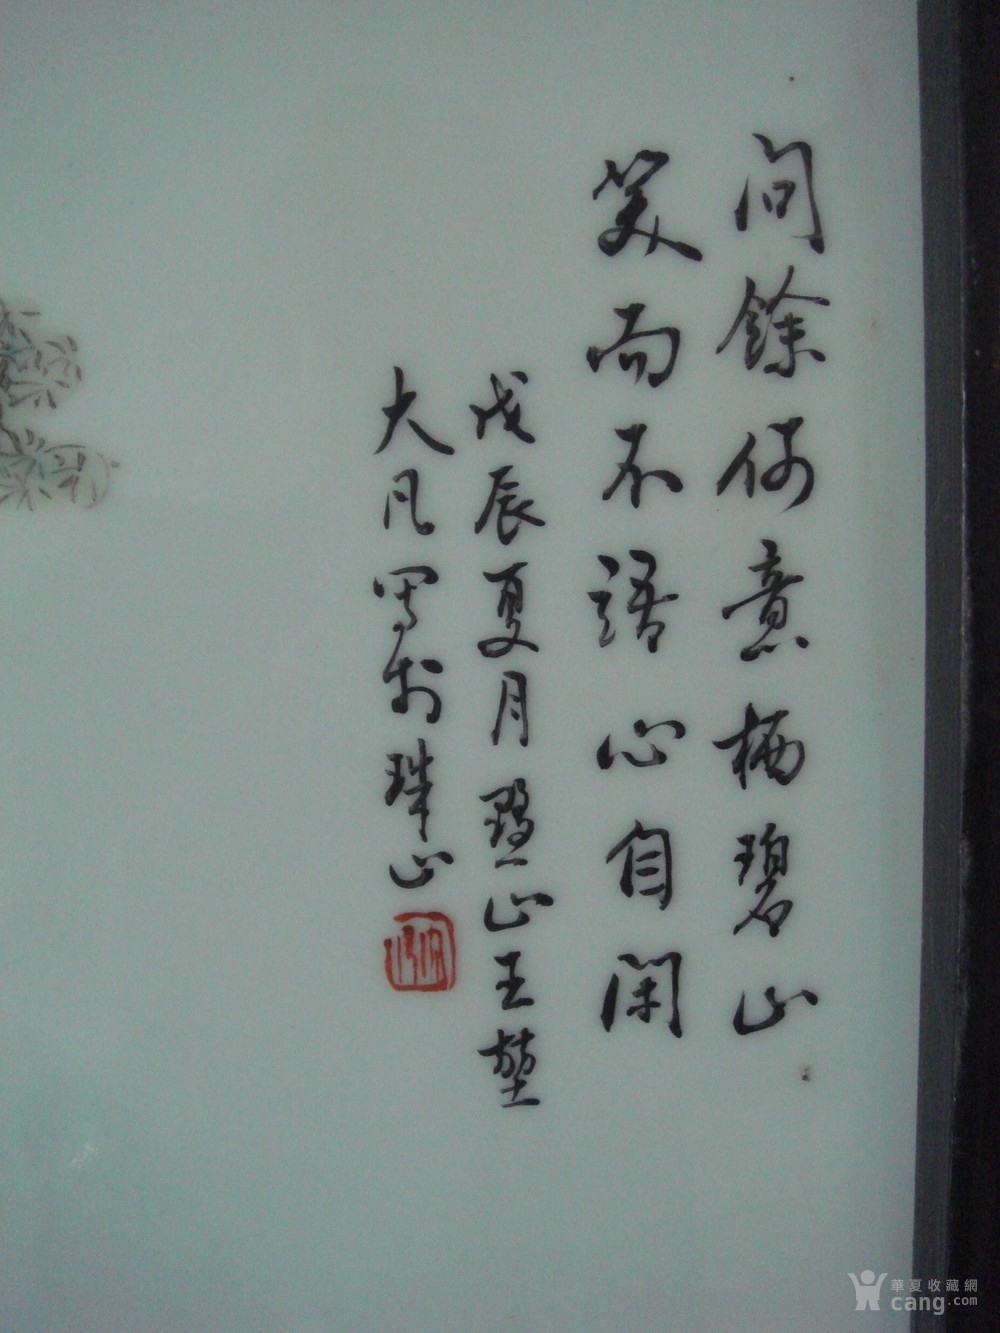 问餘何意栖碧山
笑而不語心自閑
戊辰夏月黟山王堃
大凡写於珠山
華夏收藏網
cang.com